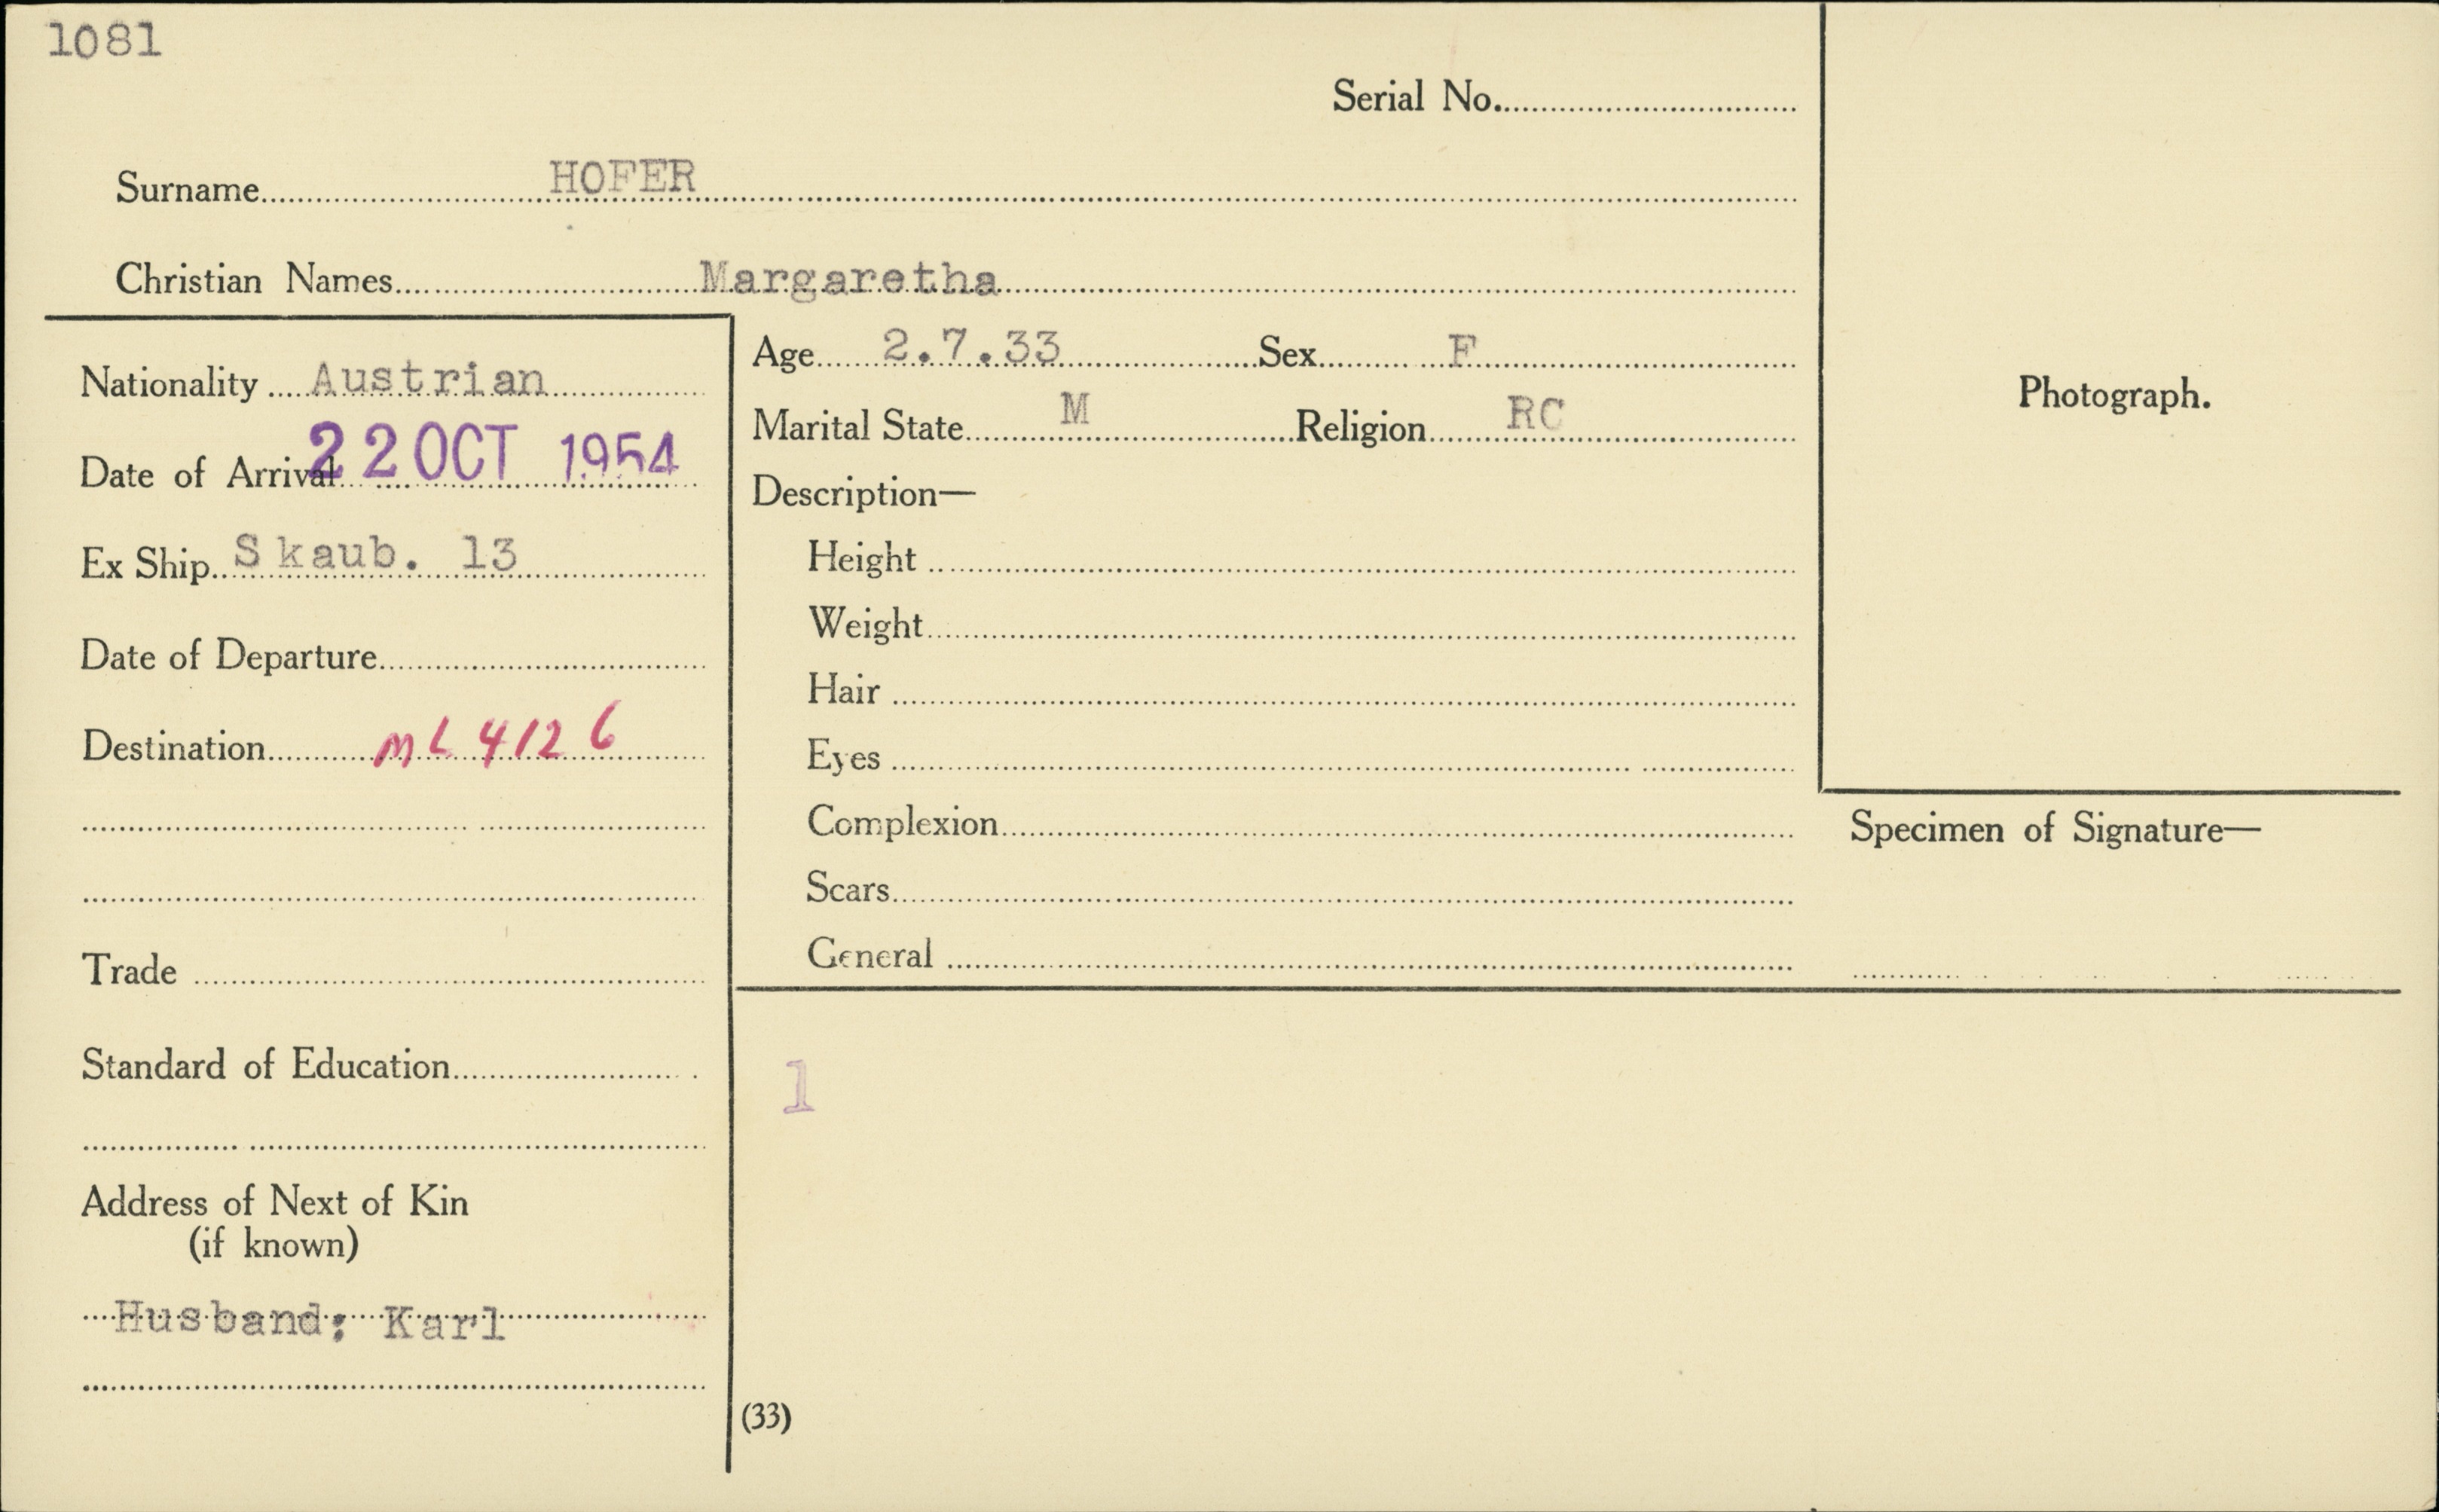 1081
Serial No.
Surname HOFER
Christian Names Margaretha
Nationality Austrian
Date of Arrival 22 OCT 1954
Ex Ship Skaub. 13
Date of Departure
Destination ML 4126
Trade
Standard of Education
Address of Next of Kin
(if known)
Husband: Karl
Age 2.7.33 Sex F
Marital State M Religion RC
Description—
Height
Weight
Hair
Eyes
Complexion
Scars
General
1
(33)
Photograph.
Specimen of Signature—